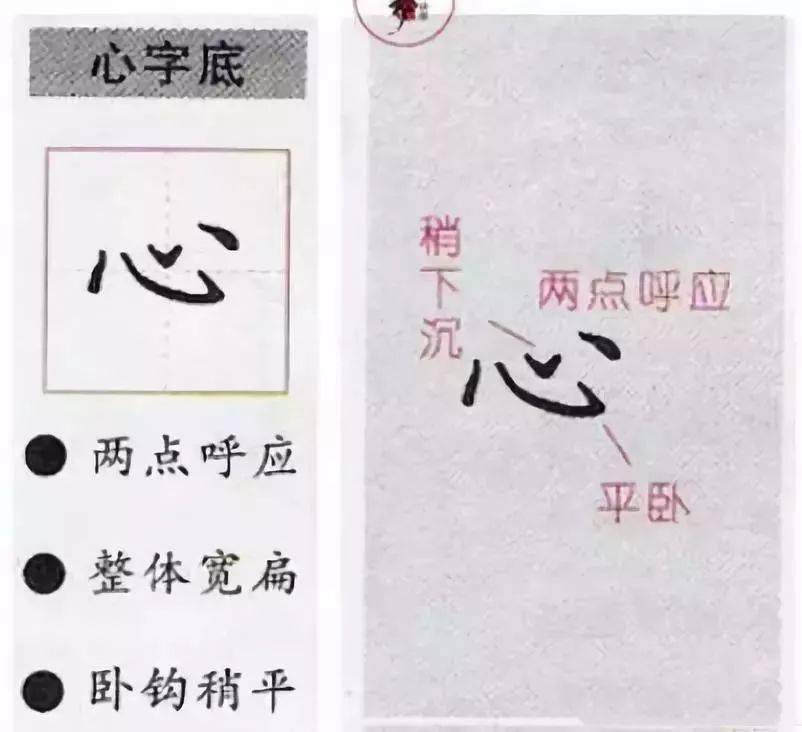 心字底
心
两点呼应
整体宽扁
卧钩稍平
稍下沉
两点呼应
心
平卧